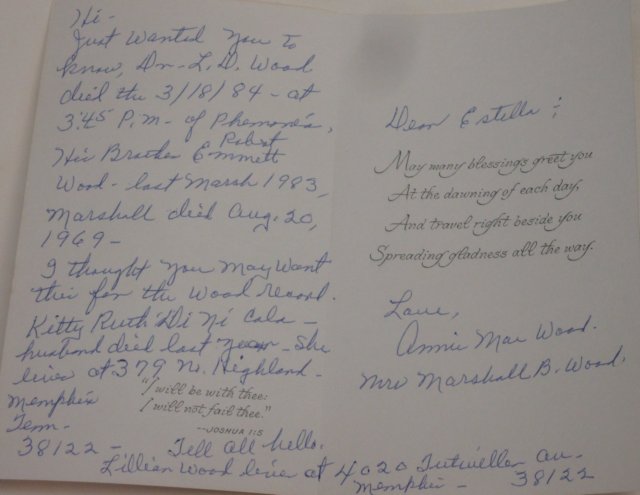 Hi-
Just Wanted You To
know, Dr- L.D. Wood
died the 3/18/84 - at
3:45 P.m. - of Phemonia,
His Brother Robert Emmett
Wood - last March 1983,
Marshall died Aug. 20,
1969 -
I thought you may want
this for the Wood record.
Kitty Ruth Di Ni Cola -
husband died last year - She
lives at 379 N. Highland -
Memphis
Tenn -
38122 - Tell all hello.
"I will be with thee:
I will not fail thee."
--JOSHUA 1:5
Lillian Wood lives at 4020 Tutwiller Av -
Memphis - 38122
Dear Estella :
May many blessings greet you
At the dawning of each day,
And travel right beside you
Spreading gladness all the way.
Love,
Annie Mae Wood.
Mrs Marshall B. Wood.